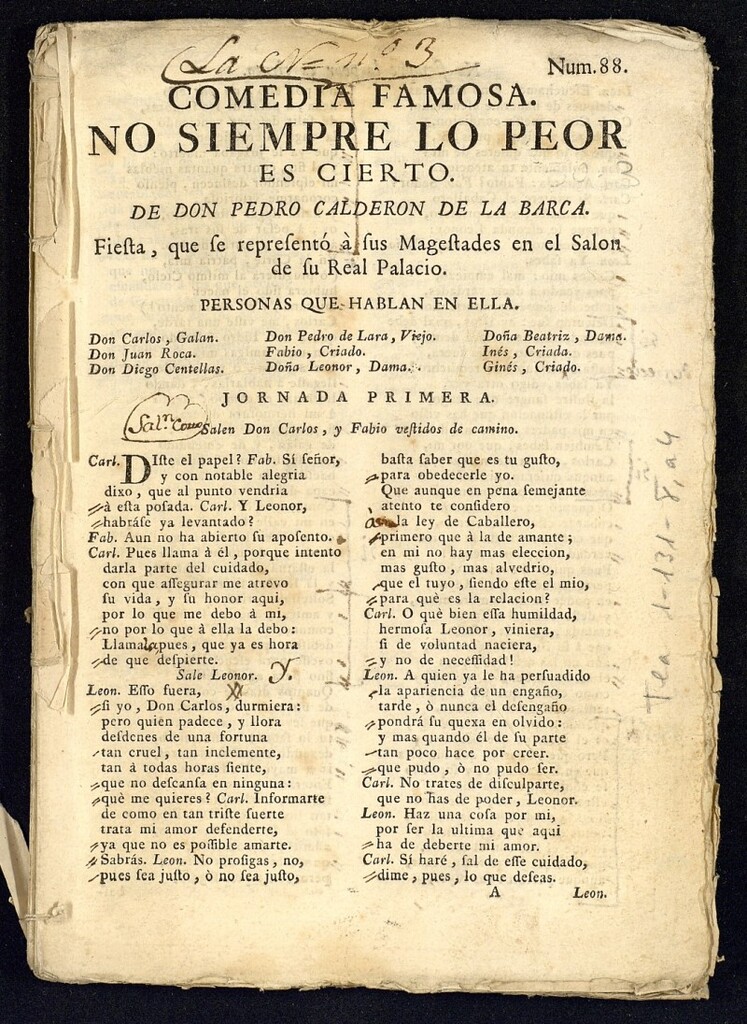 La Nº nº 3
Num. 88.
COMEDIA FAMOSA.
NO SIEMPRE LO PEOR
ES CIERTO.
DE DON PEDRO CALDERON DE LA BARCA.
Fieſta, que ſe repreſentó à ſus Mageſtades en el Salon
de ſu Real Palacio.
PERSONAS QUE HABLAN EN ELLA.
Don Carlos, Galan.
Don Juan Roca.
Don Diego Centellas.
Don Pedro de Lara, Viejo.
Fabio, Criado.
Doña Leonor, Dama.
Doña Beatriz, Dama.
Inés, Criada.
Ginés, Criado.
JORNADA PRIMERA.
Sal.n
Salen Don Carlos, y Fabio veſtidos de camino.
Carl. DIſte el papel? Fab. Sí ſeñor,
y con notable alegria
dixo, que al punto vendria
à eſta poſada. Carl. Y Leonor,
habráſe ya levantado?
Fab. Aun no ha abierto ſu apoſento.
Carl. Pues llama à él, porque intento
darla parte del cuidado,
con que aſſegurar me atrevo
ſu vida, y ſu honor aqui,
por lo que me debo á mi,
no por lo que à ella la debo:
Llamala, pues, que ya es hora
de que deſpierte.
Sale Leonor. y.
Leon. Eſſo fuera,
ſi yo, Don Carlos, durmiera:
pero quien padece, y llora
deſdenes de una fortuna
tan cruel, tan inclemente,
tan à todas horas ſiente,
que no deſcanſa en ninguna:
què me quieres? Carl. Informarte
de como en tan triſte ſuerte
trata mi amor defenderte,
ya que no es poſſible amarte.
Sabrás. Leon. No proſigas, no,
pues ſea juſto, ò no ſea juſto,
baſta ſaber que es tu guſto,
para obedecerle yo.
Que aunque en pena ſemejante
atento te conſidero
la ley de Caballero,
primero que à la de amante;
en mi no hay mas eleccion,
mas guſto, mas alvedrio,
que el tuyo, ſiendo eſte el mio,
para què es la relacion?
Carl. O què bien eſſa humildad,
hermoſa Leonor, viniera,
ſi de voluntad naciera,
y no de neceſſidad!
Leon. A quien ya le ha perſuadido
la apariencia de un engaño,
tarde, ò nunca el deſengaño
pondrá ſu quexa en olvido:
y mas quando él de ſu parte
tan poco hace por creer.
que pudo, ò no pudo ſer.
Carl. No trates de diſculparte,
que no has de poder, Leonor.
Leon. Haz una coſa por mi,
por ſer la ultima que aqui
ha de deberte mi amor.
Carl. Sí haré, ſal de eſſe cuidado,
dime, pues, lo que deſeas.
A
Leon.
Tea 1-131-8, a4